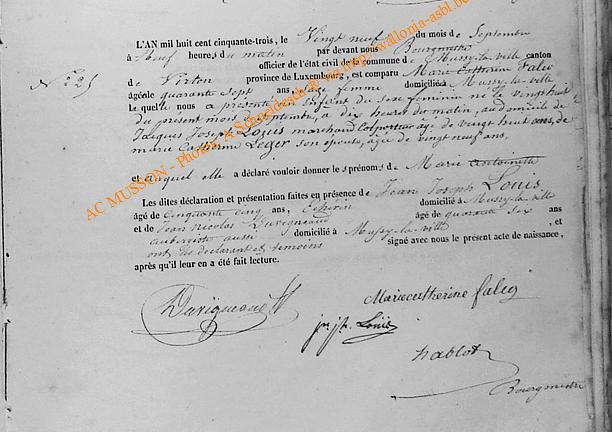 L'AN mil huit cent cinquante-trois, le Vingt neuf du mois de Septembre
à Neuf heures du matin par devant nous Bourgmestre
officier de l'état civil de la commune de Mussy-la-ville canton
de Virton province de Luxembourg, est comparu Marie Catherine
âgée de quarante Sept ans, femme domicilié à Mussy-la-ville
Lequel le nous a présenté un enfant du sexe féminin né le vingt huit
du présent mois de Septembre, a dix heures du matin, au domicile de
Jacques Joseph Louis marchand Colporteur age de vingt huit ans, de
marie Catherine Leger son épouse, age de vingt neuf ans,
et auquel elle a déclaré vouloir donner le s prénoms de Marie Antoinette
Les dites déclaration et présentation faites en présence de Jean Joseph Louis
âgé de Cinquante cinq ans, Echevin domicilié à Mussy-la-ville
et de Jean Nicolas Duvigneaud âgé de quarante six ans
aubergiste aussi domicilié à Mussy-la-ville , et
ont les déclarant et témoins signé avec nous le présent acte de naissance,
après qu'il leur en a été fait lecture.
Duvigneaud
Marie catherine
Louis
hablot
Bourgmestre
AC MUSSON - Photo A. Schneidesch @ http://wallonia-asbl.be